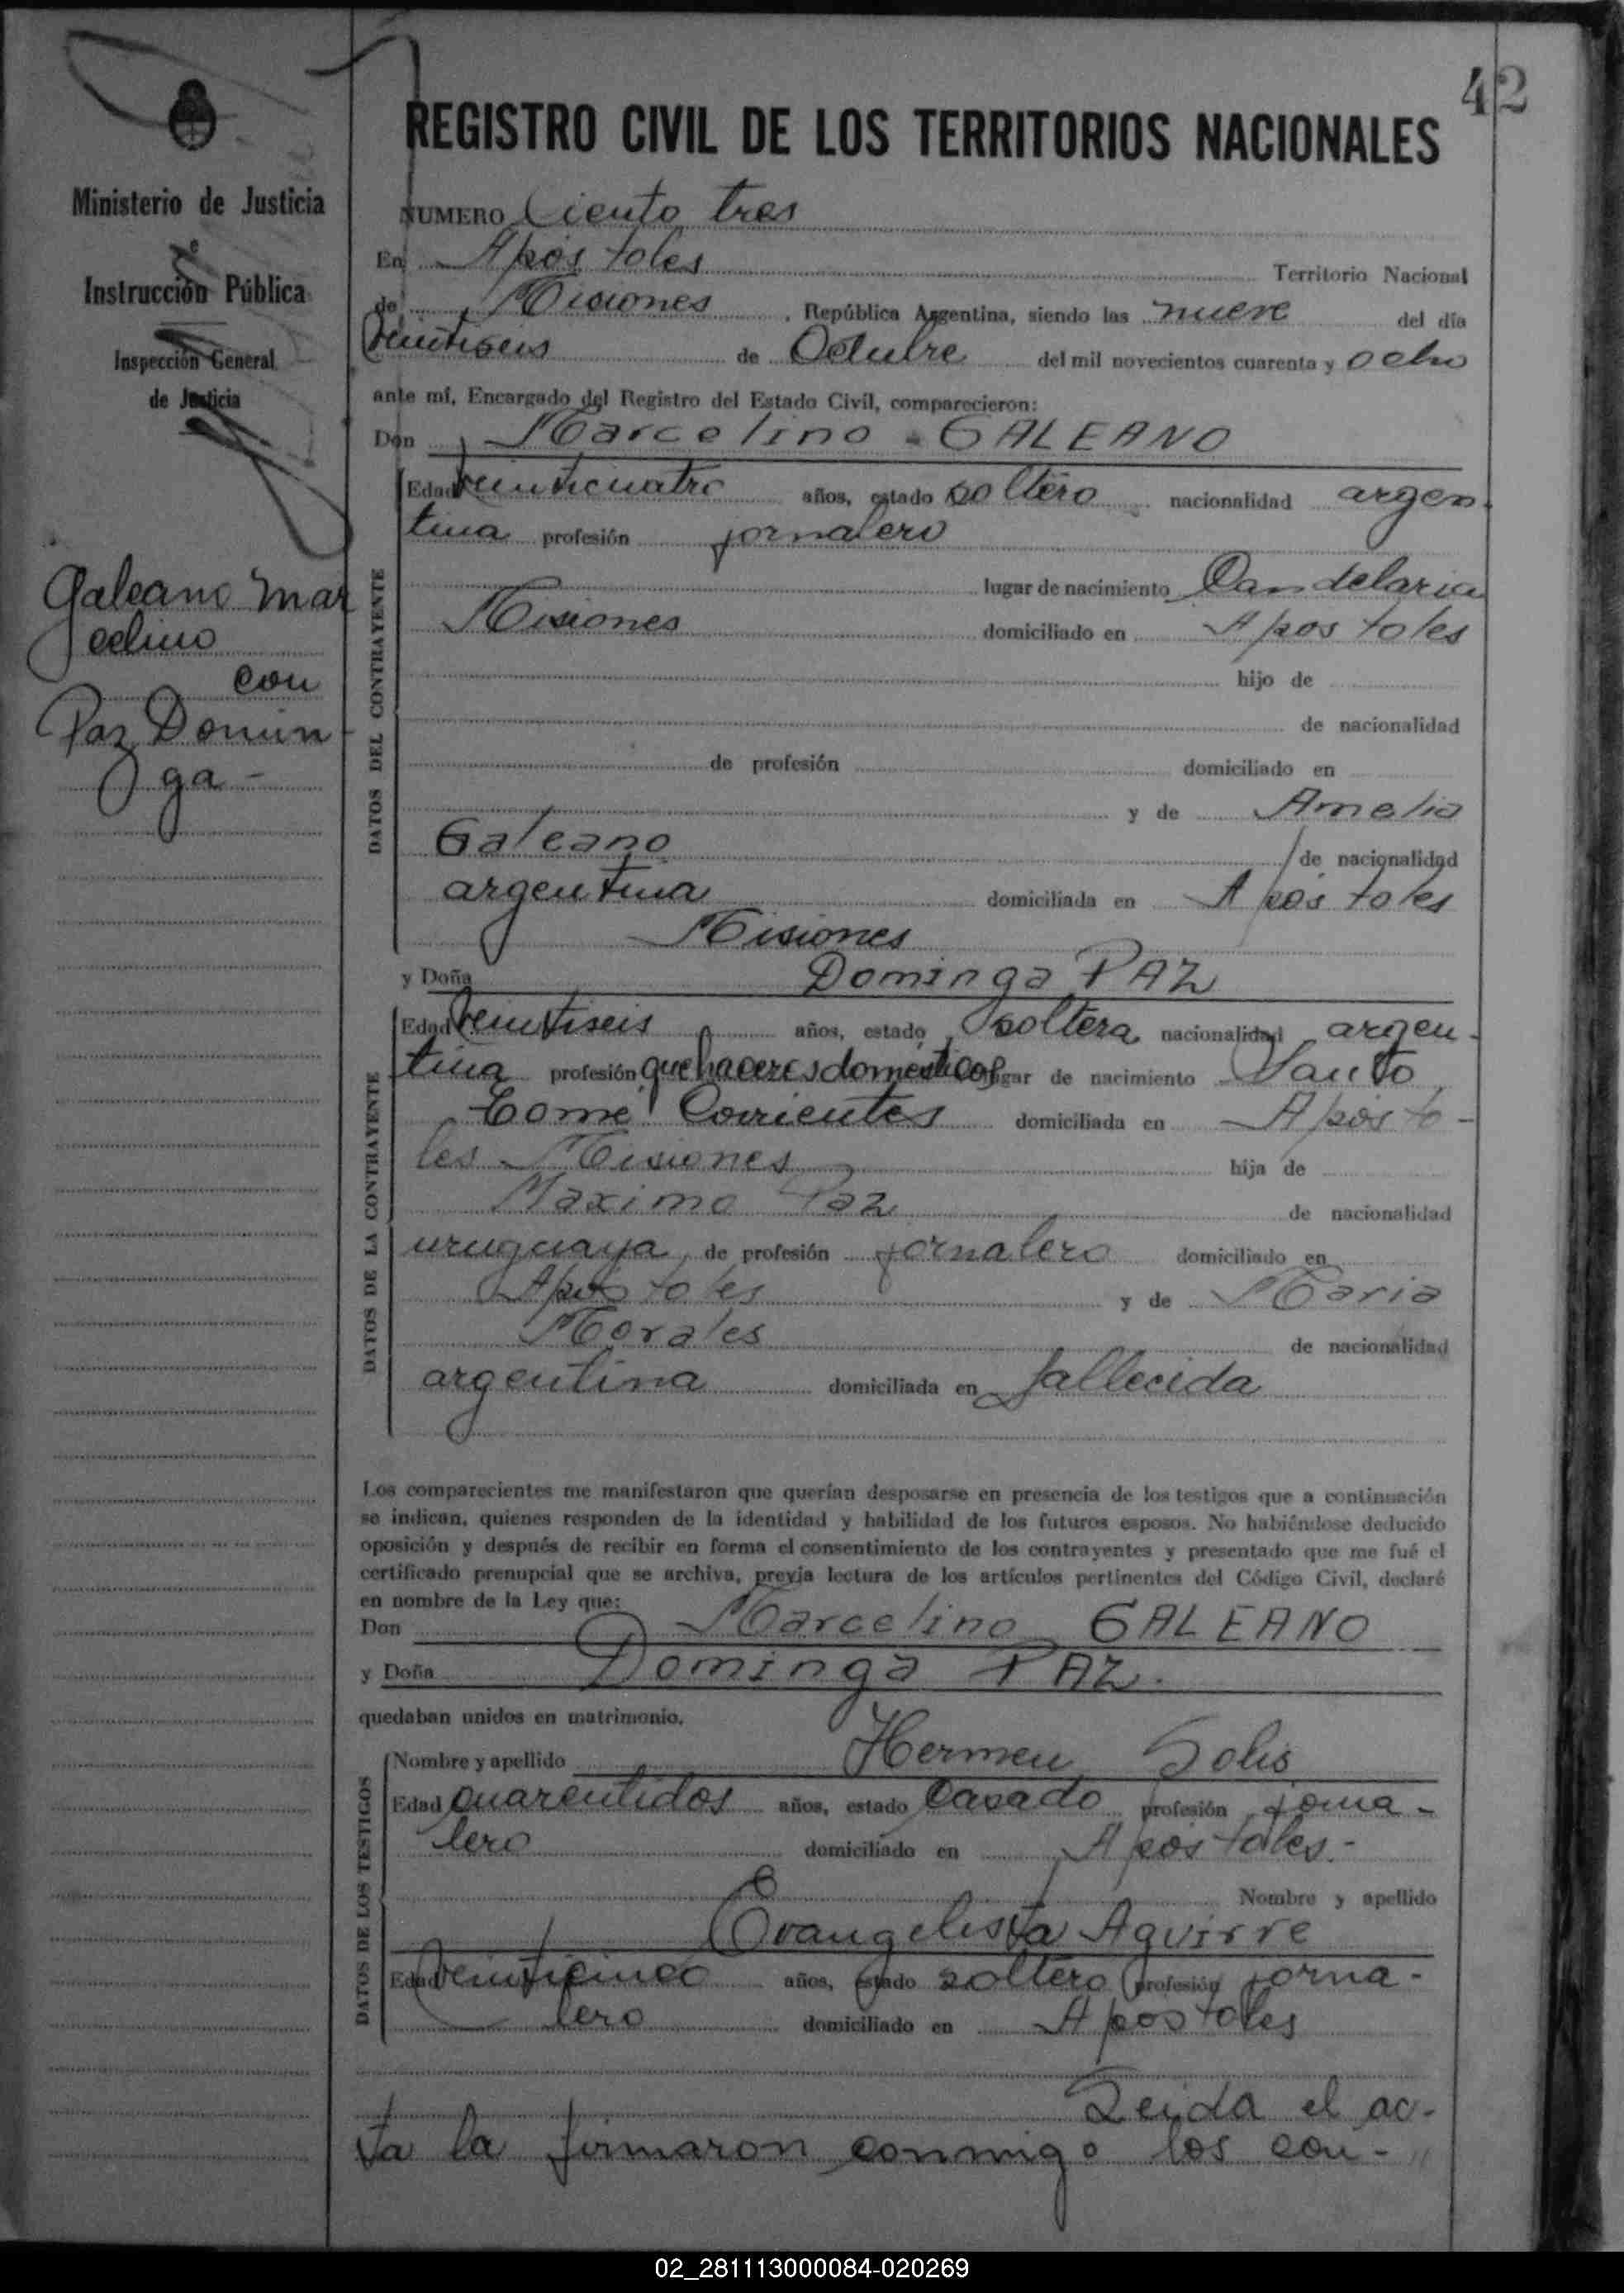 42
REGISTRO CIVIL DE LOS TERRITORIOS NACIONALES
Ministerio de Justicia
é
Instrucción Pública
Inspección General
de Justicia
Galeano Mar
celino
con
Paz Domin
ga -
NUMERO Ciento tres
En Apóstoles Territorio Nacional
de Misiones, República Argentina, siendo las nueve del día
veintiseis de Octubre del mil novecientos cuarenta y ocho
ante mí, Encargado del Registro del Estado Civil, comparecieron:
Don Marcelino - GALEANO
DATOS DEL CONTRAYENTE
Edad veinticuatro años, estado soltero nacionalidad argen-
tina profesión jornalero
lugar de nacimiento Candelaria
Misiones domiciliado en Apostoles
hijo de
de nacionalidad
de profesión domiciliado en
y de Amelia
Galeano de nacionalidad
argentina domiciliada en Apóstoles
Misiones
y Doña Dominga PAZ
DATOS DE LA CONTRAYENTE
Edad veintiseis años, estado soltera nacionalidad argen-
tina profesión quehaceres domésticos lugar de nacimiento Santo
Tomé Corrientes domiciliada en Apósto-
les Misiones hija de
Maximo Paz de nacionalidad
uruguaya, de profesión jornalero domiciliado en
Apostoles y de Maria
Morales de nacionalidad
argentina domiciliada en fallecida
Los comparecientes me manifestaron que querían desposarse en presencia de los testigos que a continuación
se indican, quienes responden de la identidad y habilidad de los futuros esposos. No habiéndose deducido
oposición y después de recibir en forma el consentimiento de los contrayentes y presentado que me fué el
certificado prenupcial que se archiva, previa lectura de los artículos pertinentes del Código Civil, declaré
en nombre de la Ley que:
Don Marcelino GALEANO
y Doña Dominga PAZ.
quedaban unidos en matrimonio.
DATOS DE LOS TESTIGOS
Nombre y apellido Hermeu Solis
Edad cuarentidos años, estado casado profesión jorna-
lero domiciliado en Apóstoles.-
Nombre y apellido
Evangelista Aguirre
Edad veinticinco años, estado soltero profesión jorna-
lero domiciliado en Apostoles
Leida el ac-
ta la firmaron conmigo los con-
02_281113000084-020269